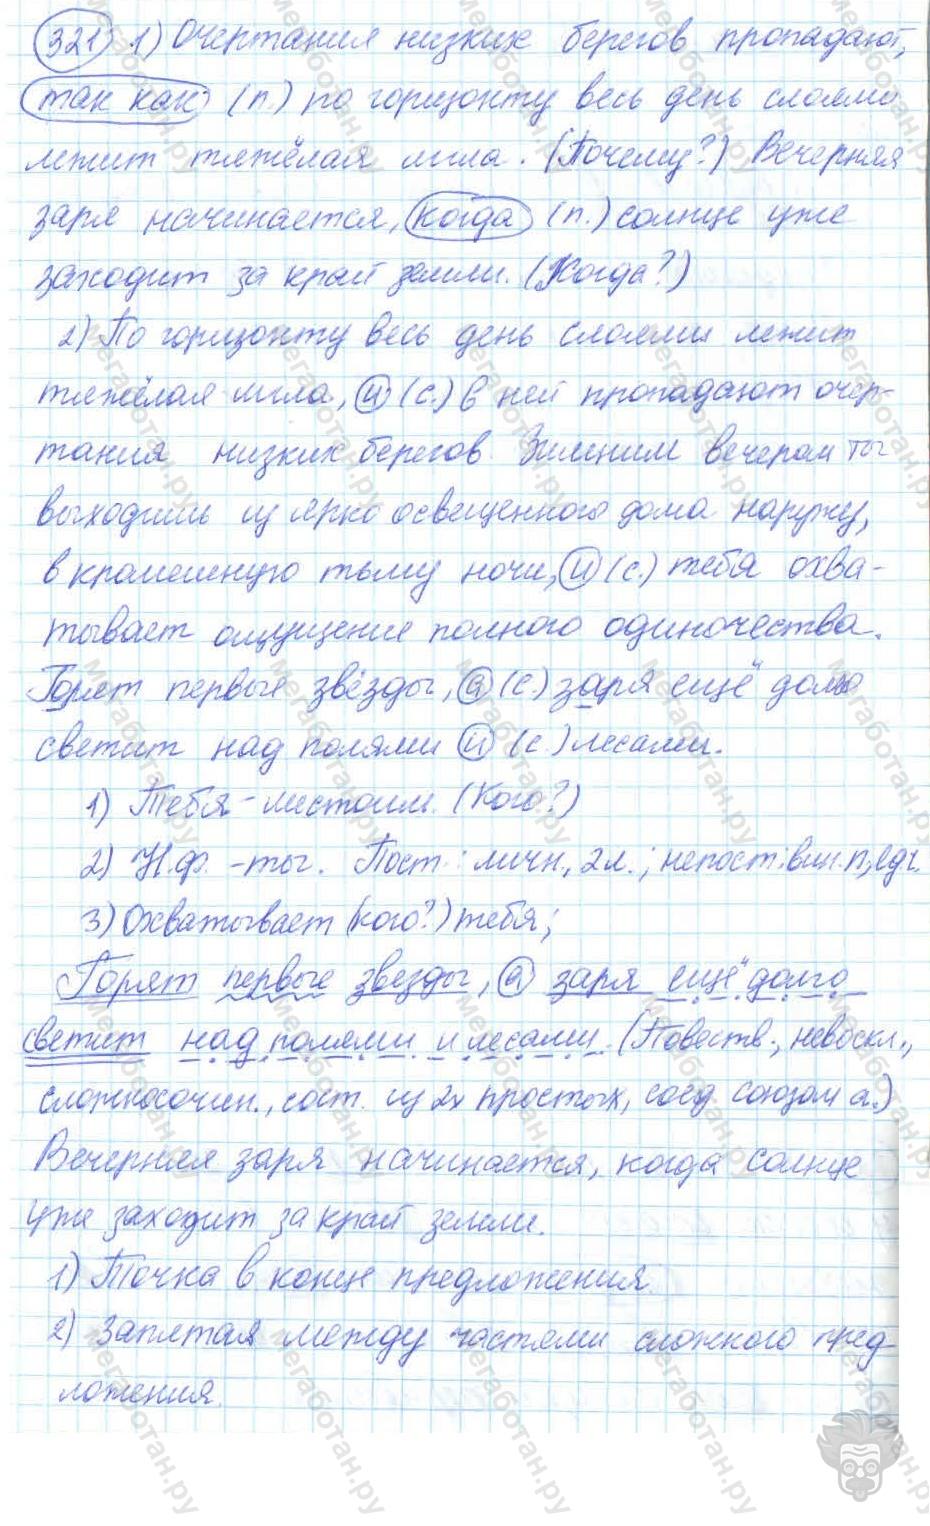 321 1) Очертания низких берегов пропадают,
так как (п.) по горизонту весь день слоями
лежит тяжёлая мгла. (Почему?) Вечерняя
заря начинается, когда (п.) солнце уже
заходит за край земли. (Когда?)
2) По горизонту весь день слоями лежит
тяжёлая мгла, и (с.) в ней пропадают очер-
тания низких берегов. Зимним вечером ты
выходишь из ярко освещенного дома наружу,
в кромешную тьму ночи, и (с.) тебя охва-
тывает ощущение полного одиночества.
Горят первые звёзды, а (с) заря ещё долго
светит над полями и (с.) лесами.
1) Тебя - местоим. (Кого?)
2) Н.ф. - ты. Пост.: личн., 2 л.; непост: вин. п, ед ч.
3) Охватывает (кого?) тебя;
Горят первые звезды, а заря ещё долго
светит над полями и лесами. (Повеств., невоскл.,
сложносочин., сост. из 2х простых, соед союзом а.)
Вечерняя заря начинается, когда солнце
уже заходит за край земли.
1) Точка в конце предложения.
2) Запятая между частями сложного пред-
ложения.
мегаботан.ру